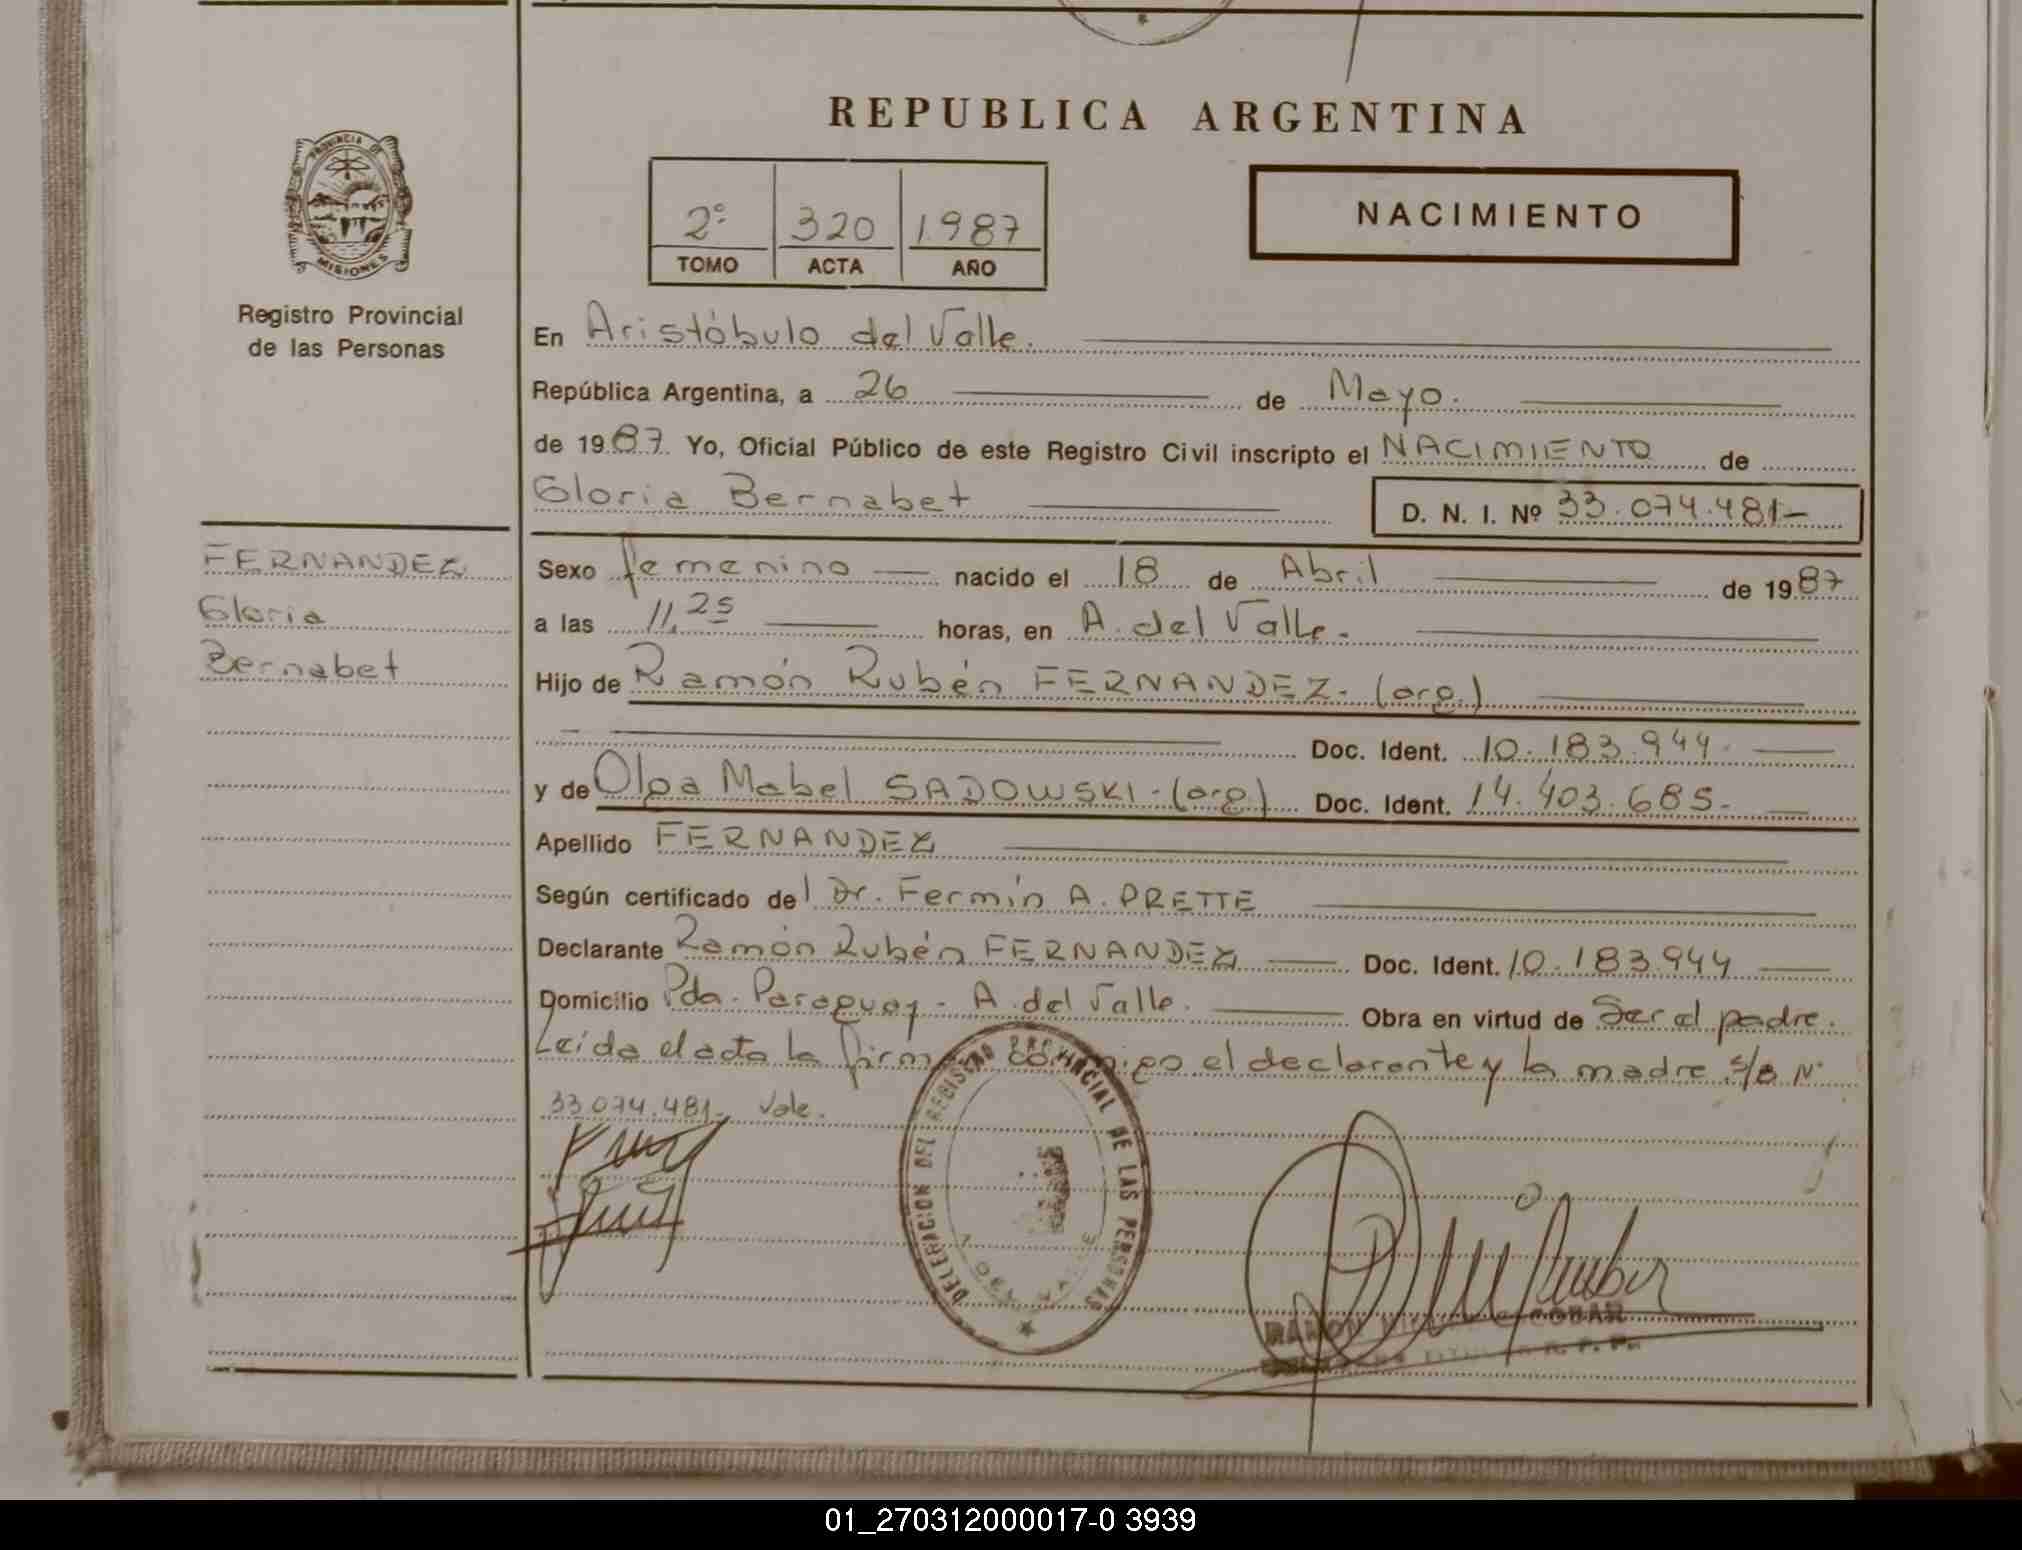 REPUBLICA ARGENTINA
PROVINCIA DE
MISIONES
Registro Provincial
de las Personas
2º 320 1987
TOMO ACTA AÑO
NACIMIENTO
En Aristóbulo del Valle.
República Argentina, a 26 de Mayo.
de 1987. Yo, Oficial Público de este Registro Civil inscripto el NACIMIENTO de
Gloria Bernabet
D. N. I. Nº 33.074.481-
FERNANDEZ
Gloria
Bernabet
Sexo femenino nacido el 18 de Abril de 1987
a las 11,25 horas, en A. del Valle.
Hijo de Ramón Rubén FERNANDEZ- (arg.)
Doc. Ident. 10.183.944-
y de Olga Mabel SADOWSKI-(arg) Doc. Ident. 14.403.685-
Apellido FERNANDEZ
Según certificado del Dr. Fermín A. PRETTE
Declarante Ramón Rubén FERNANDEZ Doc. Ident. 10.183.944
Domicilio Pda. Paraguay - A. del Valle. Obra en virtud de Ser el padre.
Leída el acta la firman conmigo el declarante y la madre. s/b Nº
33.074.481- Vale.
DELEGACION DEL REGISTRO PROVINCIAL DE LAS PERSONAS
DEL VALLE
RAMON ESCOBAR
01_270312000017-0 3939